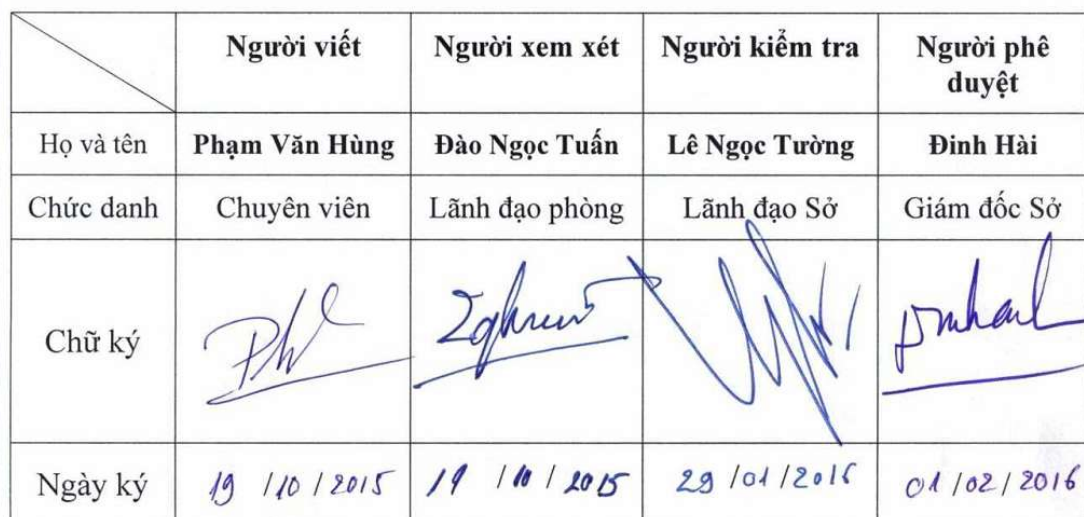 Người viết Người xem xét Người kiểm tra Người phê
duyệt
Họ và tên Phạm Văn Hùng Đào Ngọc Tuấn Lê Ngọc Tường Đinh Hài
Chức danh Chuyên viên Lãnh đạo phòng Lãnh đạo Sở Giám đốc Sở
Chữ ký
Ngày ký 19 /10 / 2015 19 /10 / 2015 29 /01 /2016 01 /02 / 2016